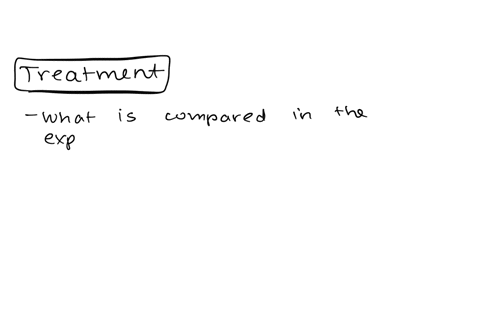 Treatment
- what is compared in the
exp